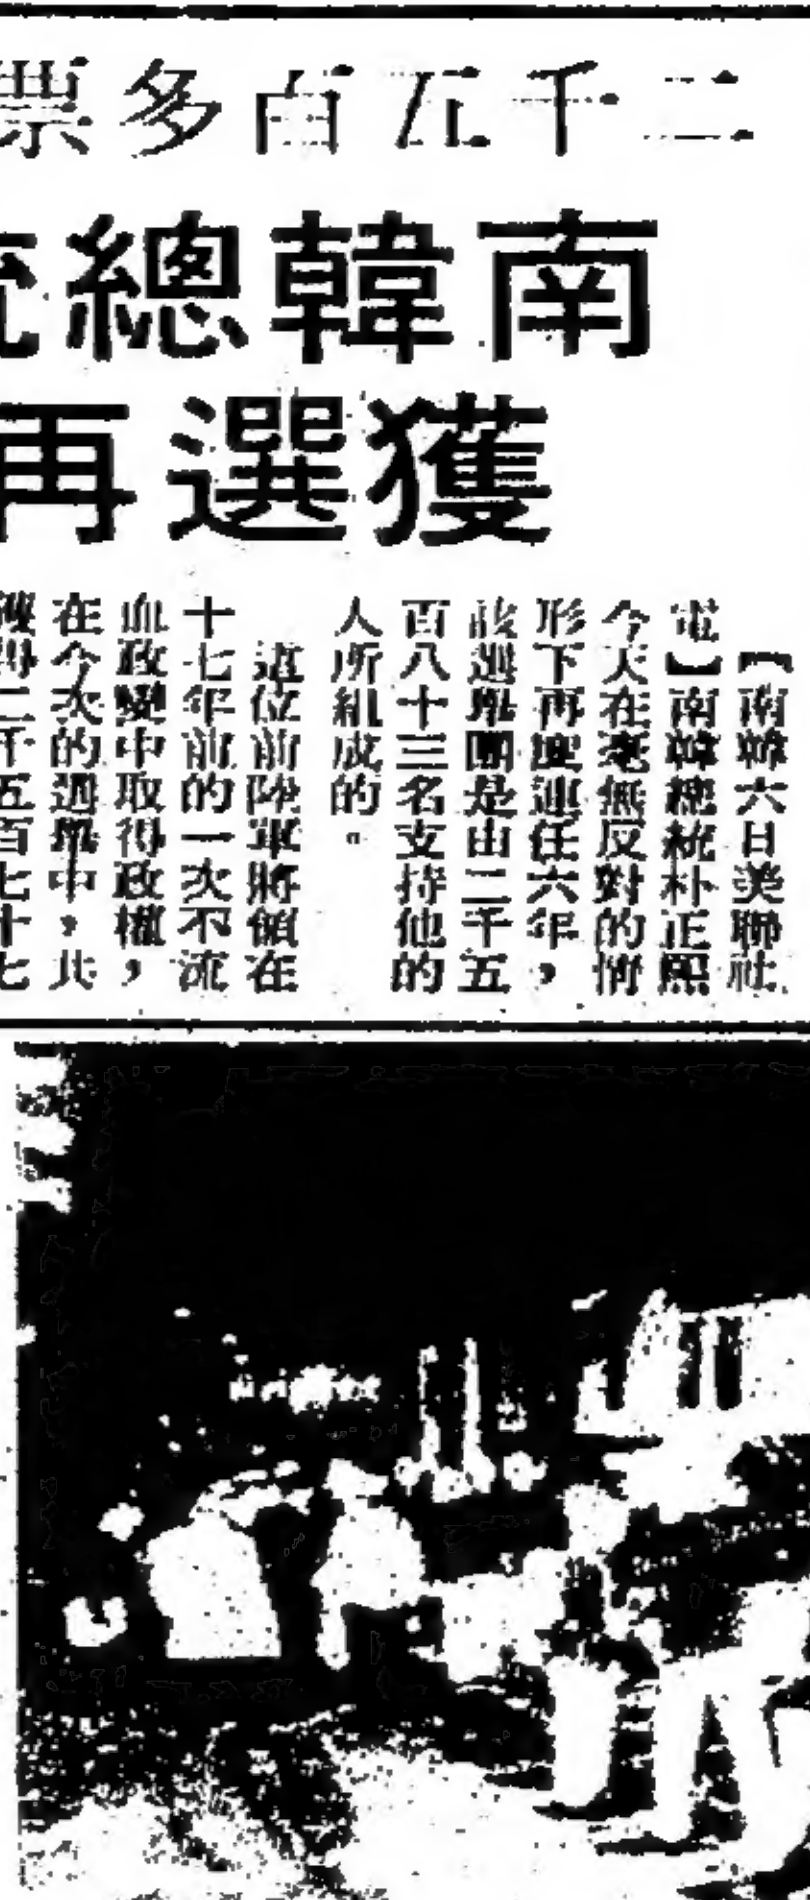 二千五百多票
南韓總統
獲選再
【南韓六日美聯社
電】南韓總統朴正熙
今天在毫無反對的情
形下再度連任六年，
該選舉團是由二千五
百八十三名支持他的
人所組成的。
這位前陸軍將領在
十七年前的一次不流
血政變中取得政權，
在今次的選舉中，共
獲得二千五百七十七